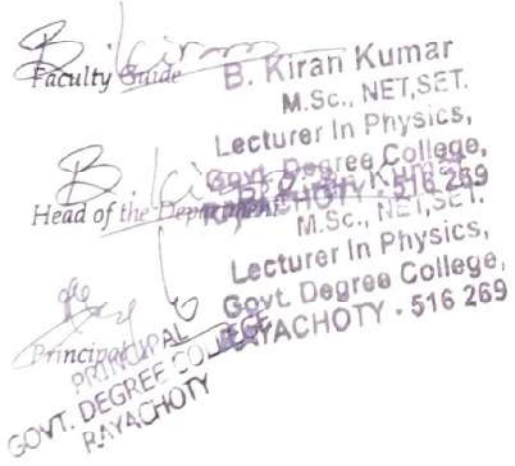 B. Kiran
Faculty Guide
B. Kiran Kumar
M.Sc., NET,SET.
Lecturer In Physics,
Govt. Degree College,
RAYACHOTY - 516 269
B. Kiran
Head of the Department
M.Sc., NET,SET.
Lecturer In Physics,
Govt. Degree College,
RAYACHOTY - 516 269
Principal
PRINCIPAL
GOVT. DEGREE COLLEGE
RAYACHOTY